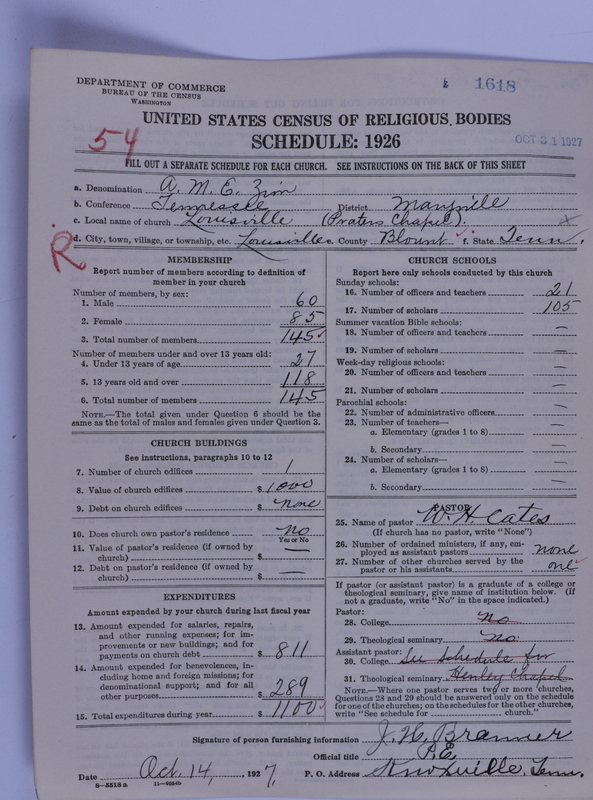 DEPARTMENT OF COMMERCE
BUREAU OF THE CENSUS
WASHINGTON
1618
UNITED STATES CENSUS OF RELIGIOUS BODIES
SCHEDULE: 1926
OCT 31 1927
54
FILL OUT A SEPARATE SCHEDULE FOR EACH CHURCH. SEE INSTRUCTIONS ON THE BACK OF THIS SHEET
a. Denomination A. M. E. Zion
b. Conference Tennessee District Maryville
c. Local name of church Louisville (Praters Chapel).
d. City, town, village, or township, etc. Louisville e. County Blount f. State Tenn.
R
MEMBERSHIP
Report number of members according to definition of
member in your church
Number of members, by sex:
1. Male 60
2. Female 85
3. Total number of members 145
Number of members under and over 13 years old:
4. Under 13 years of age 27
5. 13 years old and over 118
6. Total number of members 145
NOTE.—The total given under Question 6 should be
same as the total of males and females given under Question 3.
CHURCH BUILDINGS
See instructions, paragraphs 10 to 12
7. Number of church edifices 1
8. Value of church edifices $ 1000
9. Debt on church edifices $ none
10. Does church own pastor's residence No
Yes or No
11. Value of pastor's residence (if owned by
church) $ —
12. Debt on pastor's residence (if owned by
church) $ —
EXPENDITURES
Amount expended by your church during last fiscal year
13. Amount expended for salaries, repairs,
and other running expenses; for im-
provements or new buildings; and for
payments on church debt $ 811
14. Amount expended for benevolences, in-
cluding home and foreign missions; for
denominational support; and for all
other purposes $ 289
15. Total expenditures during year $ 1100
CHURCH SCHOOLS
Report here only schools conducted by this church
Sunday schools:
16. Number of officers and teachers 21
17. Number of scholars 105
Summer vacation Bible schools:
18. Number of officers and teachers —
19. Number of scholars —
Week-day religious schools:
20. Number of officers and teachers —
21. Number of scholars —
Parochial schools:
22. Number of administrative officers —
23. Number of teachers—
a. Elementary (grades 1 to 8) —
b. Secondary —
24. Number of scholars—
a. Elementary (grades 1 to 8) —
b. Secondary —
PASTOR
25. Name of pastor W. H. Cates
(If church has no pastor, write "None")
26. Number of ordained ministers, if any, em-
ployed as assistant pastors none
27. Number of other churches served by the
pastor or his assistants one
If pastor (or assistant pastor) is a graduate of a college or
theological seminary, give name of institution below. (If
not a graduate, write "No" in the space indicated.)
Pastor:
28. College No
29. Theological seminary No
Assistant pastor:
30. College See Schedule for
31. Theological seminary Henley Chapel
NOTE.—Where one pastor serves two or more churches,
Questions 28 and 29 should be answered only on the schedule
for one of the churches; on the schedules for the other churches,
write "See schedule for church."
Signature of person furnishing information J. H.
Official title P.E.
Date Oct. 14, 1927, P. O. Address Knoxville, Tenn.
8—5518 a 11—9034b